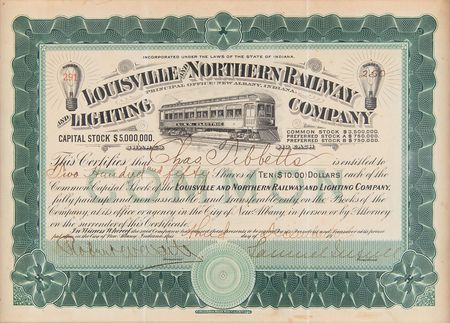 INCORPORATED UNDER THE LAWS OF THE STATE OF INDIANA.
291
250
LOUISVILLE AND NORTHERN RAILWAY
PRINCIPAL OFFICE: NEW ALBANY, INDIANA.
AND LIGHTING COMPANY
L. & N. ELECTRIC
CAPITAL STOCK $5,000,000.
SHARES $10 EACH
COMMON STOCK $3,500,000.
PREFERRED STOCK A $750,000.
PREFERRED STOCK B $750,000.
This Certifies that Chas Tibbetts is entitled to
Two hundred and fifty Shares of TEN ($10.00) DOLLARS each of the
Common Capital Stock of the LOUISVILLE AND NORTHERN RAILWAY AND LIGHTING COMPANY,
fully paid up and non-assessable and transferable only on the Books of the
Company, at its office or agency in the City of New Albany in person or by Attorney
on the surrender of this Certificate.
In Witness Whereof
COMMON